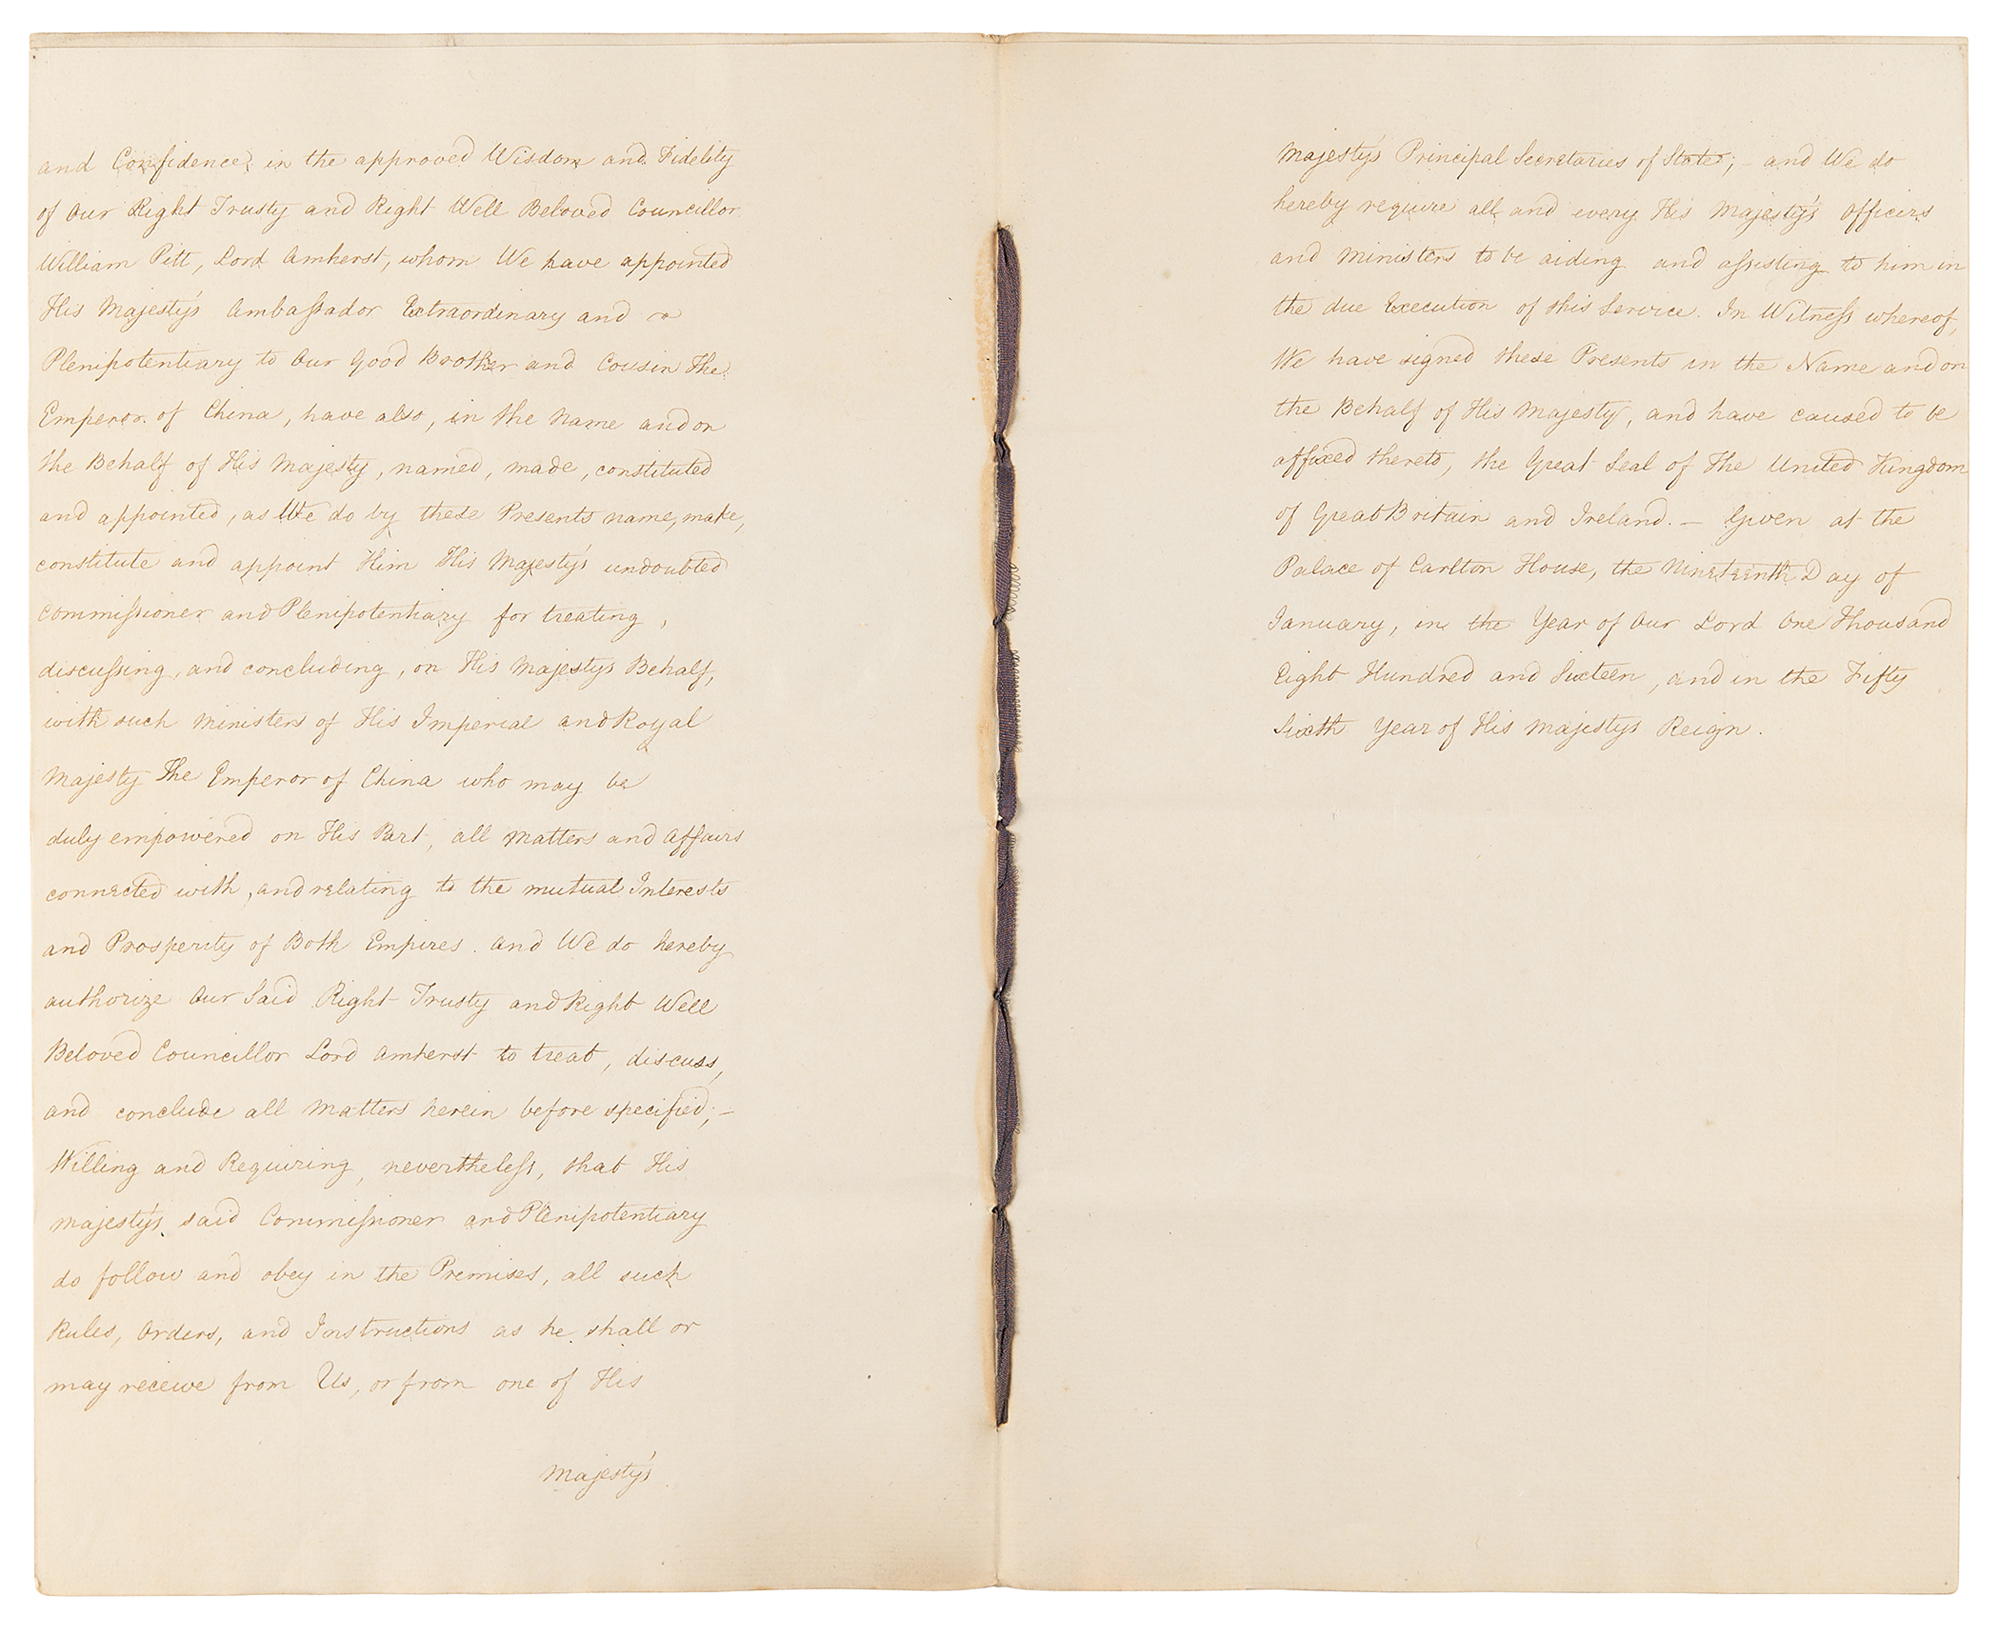 and Confidence in the approved Wisdom and Fidelity
of Our Right Trusty and Right Well Beloved Councillor
William Pitt, Lord Amherst, whom We have appointed
His Majesty's Ambaſsador Extraordinary and
Plenipotentiary to Our Good Brother and Cousin The
Emperor of China, have also, in the Name and on
the Behalf of His Majesty, named, made, constituted
and appointed, as We do by these Presents name, make,
constitute and appoint Him His Majesty's undoubted
Commiſsioner and Plenipotentiary for treating,
discuſsing, and concluding, on His Majestys Behalf,
with such Ministers of His Imperial and Royal
Majesty The Emperor of China who may be
duly empowered on His Part, all Matters and Affairs
connected with, and relating to the mutual Interests
and Prosperity of Both Empires. And We do hereby
authorize Our Said Right Trusty and Right Well
Beloved Councillor Lord Amherst to treat, discuss,
and conclude all Matters herein before specified; –
Willing and Requiring, nevertheleſs, that His
Majesty's said Commiſsioner and Plenipotentiary
do follow and obey in the Premises, all such
Rules, Orders, and Instructions as he shall or
may receive from Us, or from one of His
Majesty's
Majesty's Principal Secretaries of State; – and We do
hereby require all and every His Majesty's Officers
and Ministers to be aiding and aſsisting to him in
the due Execution of this Service. In Witneſs whereof,
We have signed these Presents in the Name and on
the Behalf of His Majesty, and have caused to be
affixed thereto, the Great Seal of The United Kingdom
of Great Britain and Ireland. – Given at the
Palace of Carlton House, the Nineteenth Day of
January, in the Year of Our Lord One Thousand
Eight Hundred and Sixteen, and in the Fifty
Sixth Year of His Majestys Reign.